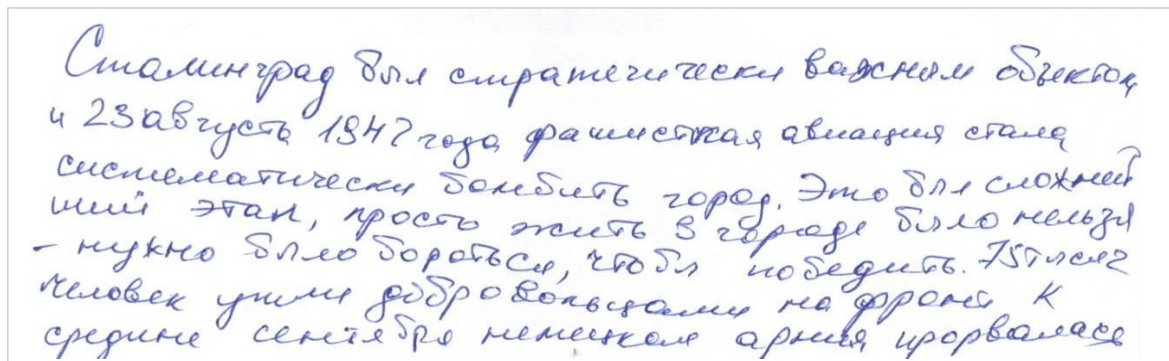 Сталинград был стратегически важным объектом
и 23 августа 1942 года фашисткая авиация стала
систематически бомбить город. Это был сложней
ший этап, просто жить в городе было нельзя
- нужно было бороться, чтобы победить. 75 тысяч
человек ушли добровольцами на фронт К
средине сентября немецкая армия прорвалась